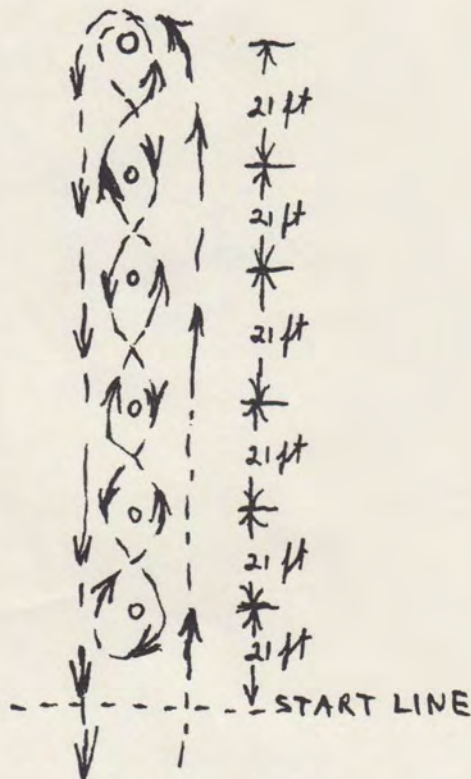 21 ft
21 ft
21 ft
21 ft
21 ft
21 ft
START LINE